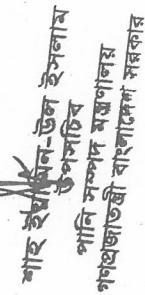 শাহ্ ইয়ামিন-উল ইসলাম
উপসচিব
পানি সম্পদ মন্ত্রণালয়
গণপ্রজাতন্ত্রী বাংলাদেশ সরকার